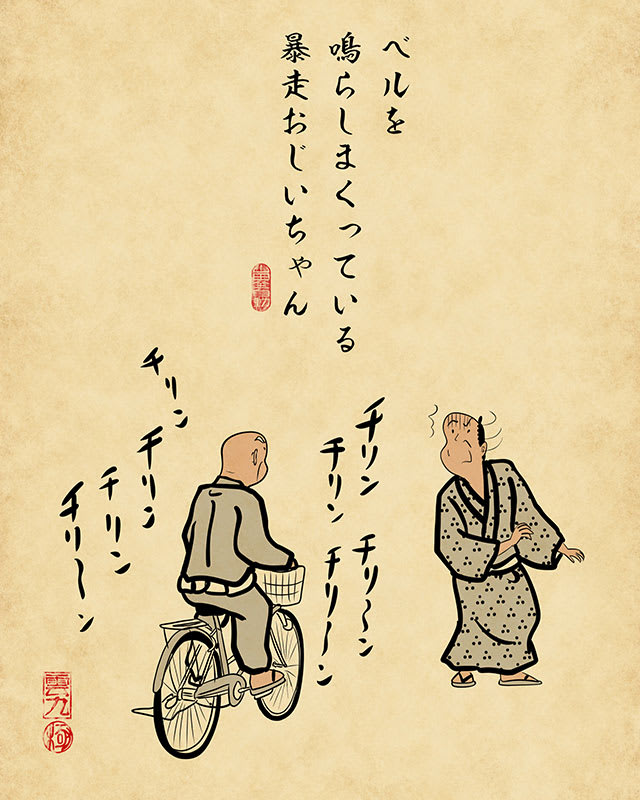 ベルを
鳴らしまくっている
暴走おじいちゃん
チリン
チリン
チリン
チリ〜ン
チリン
チリン
チリ〜ン
チリ〜ン